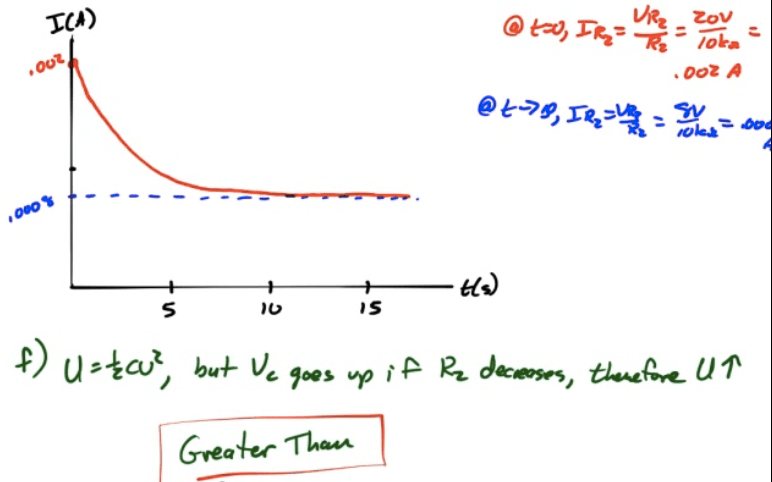 I(A)
.002
.0008
5 10 15 t(s)
@ t=0, I R₂ = VR₂/R₂ = 20V/10kΩ =
.002 A
@ t→∞, I R₂ = VR₂/R₂ = 8V/10kΩ = .000
A
f) U = ½cv², but Vc goes up if R₂ decreases, therefore U↑
Greater Than